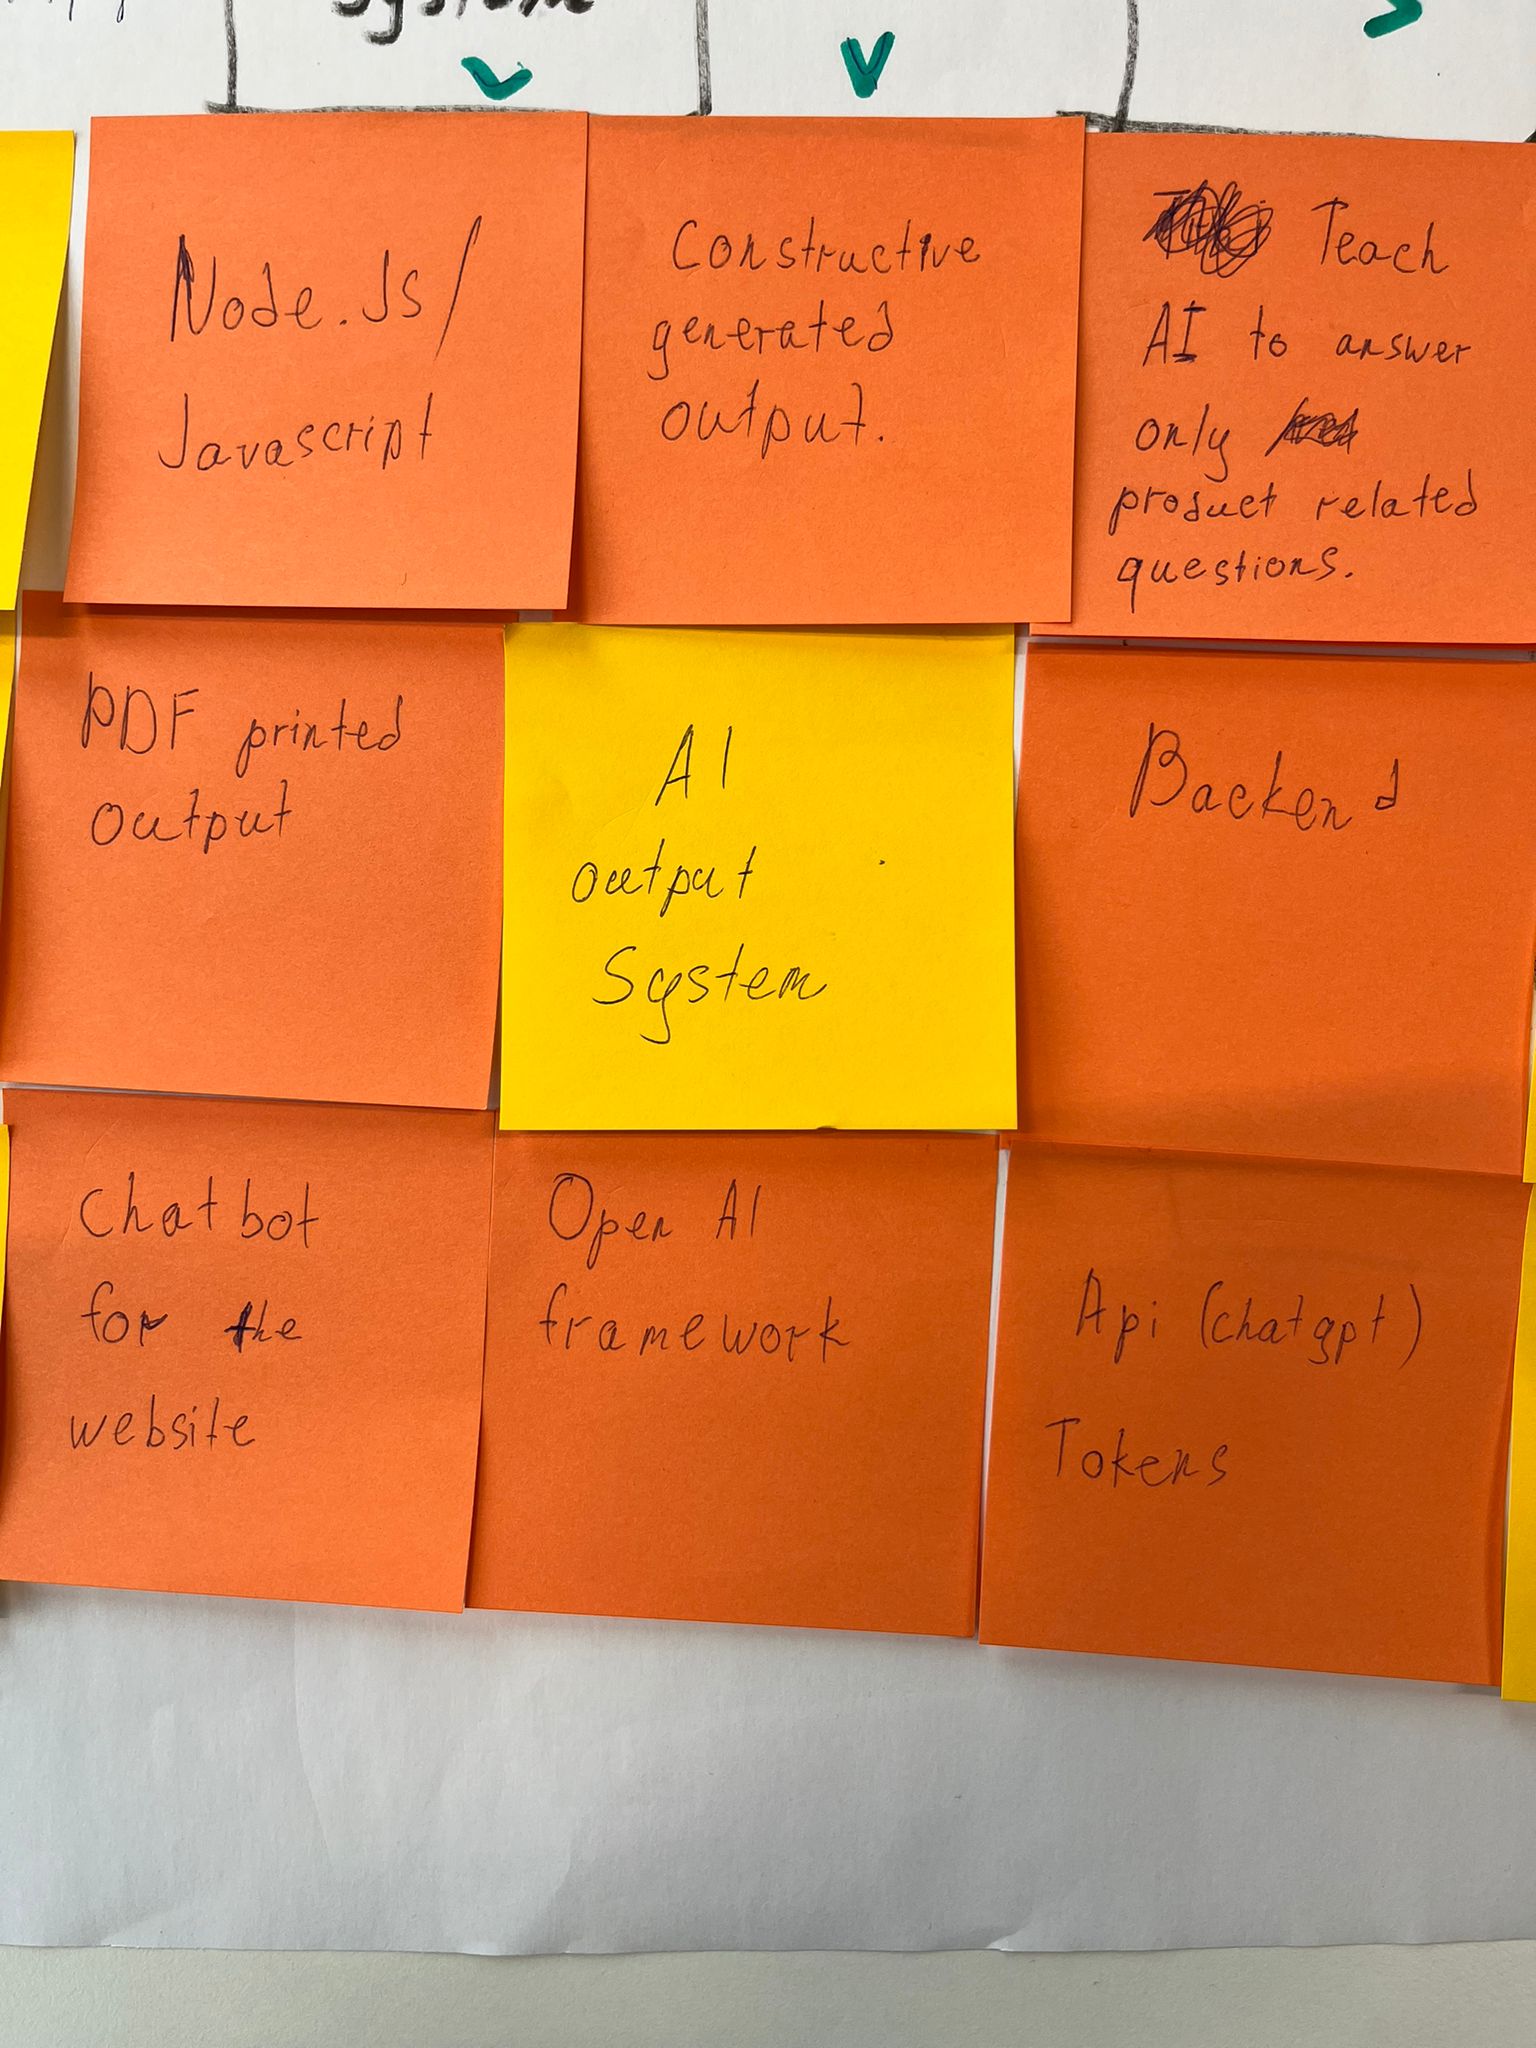 system
Node.Js/
Javascript
Constructive
generated
output.
Teach
AI to answer
only
product related
questions.
PDF printed
output
AI
output
System
Backend
Chatbot
for the
website
Open AI
framework
Api (chatgpt)
Tokens